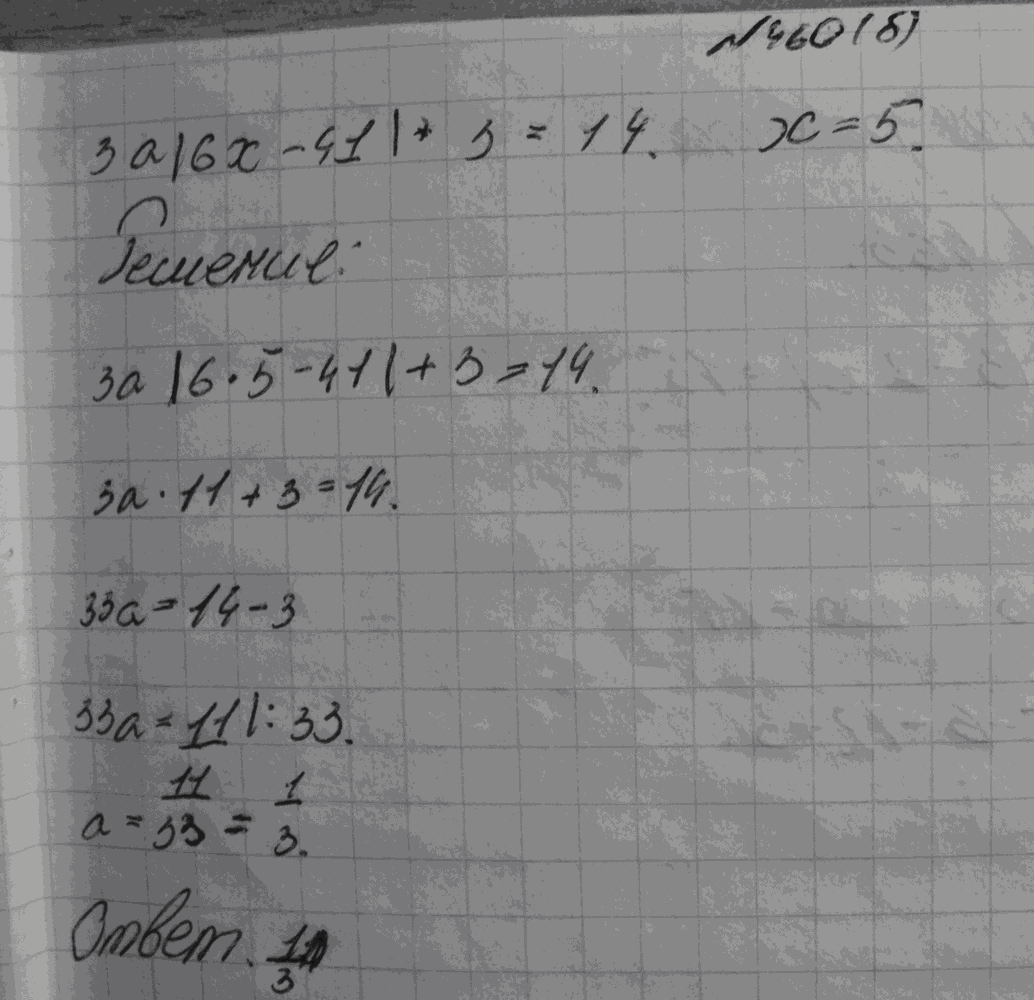 №460(б)
3a|6x-41|+3=14. x=5.
Решение:
3a|6·5-41|+3=14.
3a·11+3=14.
33a=14-3
33a=11|:33.
a=11/33=1/3.
Ответ. 1/3